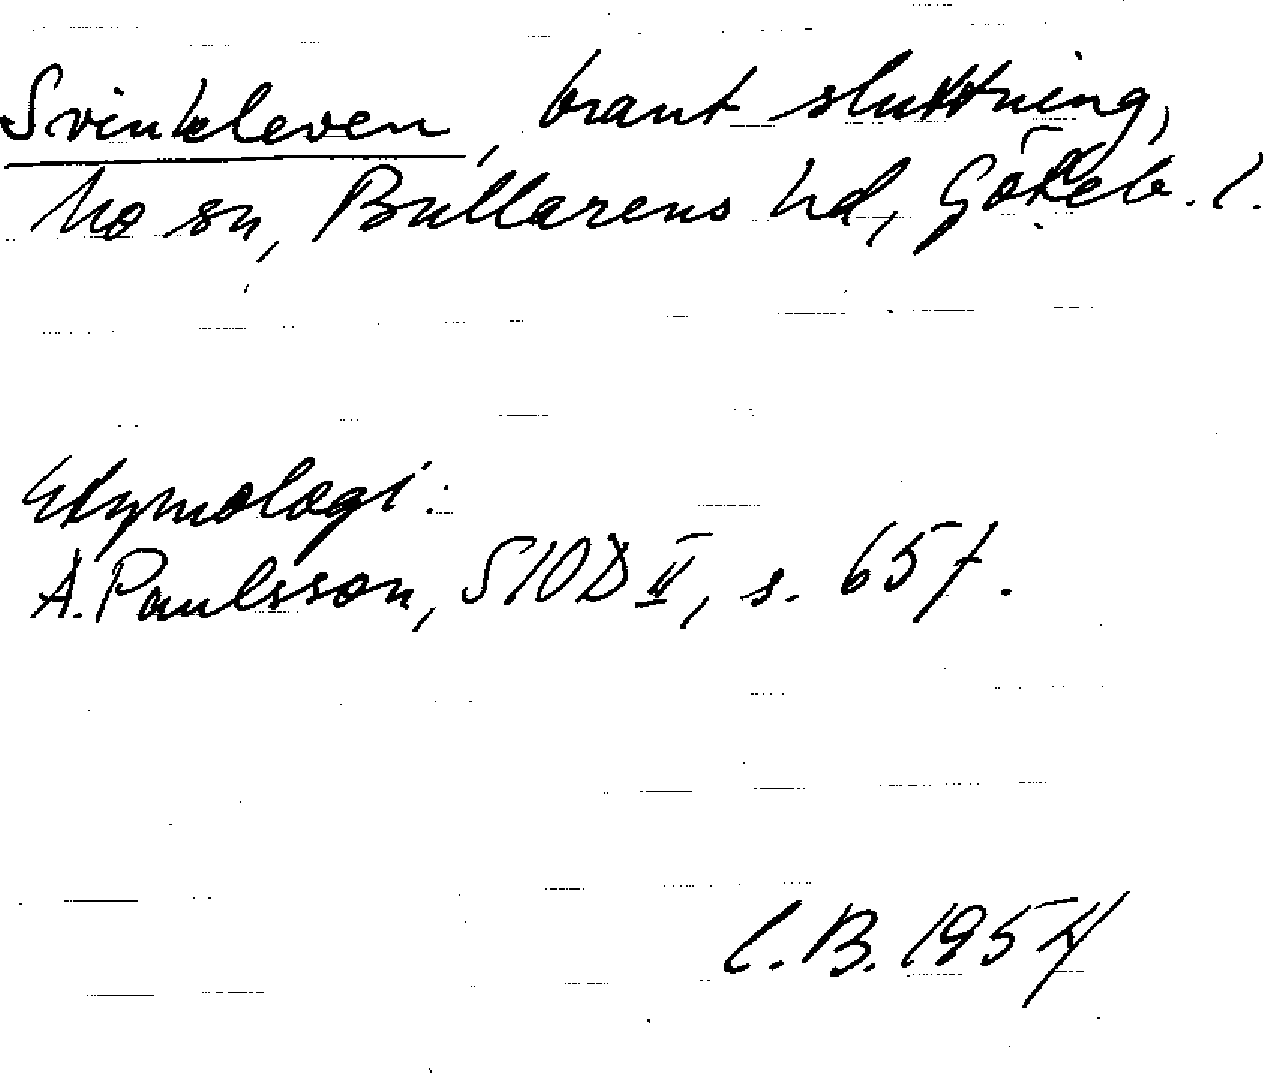 Svinkleven, brant sluttning,
Mo sn, Bullarens hd, Göteb. l.
Etymologi:
A. Paulsson, SIOD II, s. 65 f.
C. B. 1954